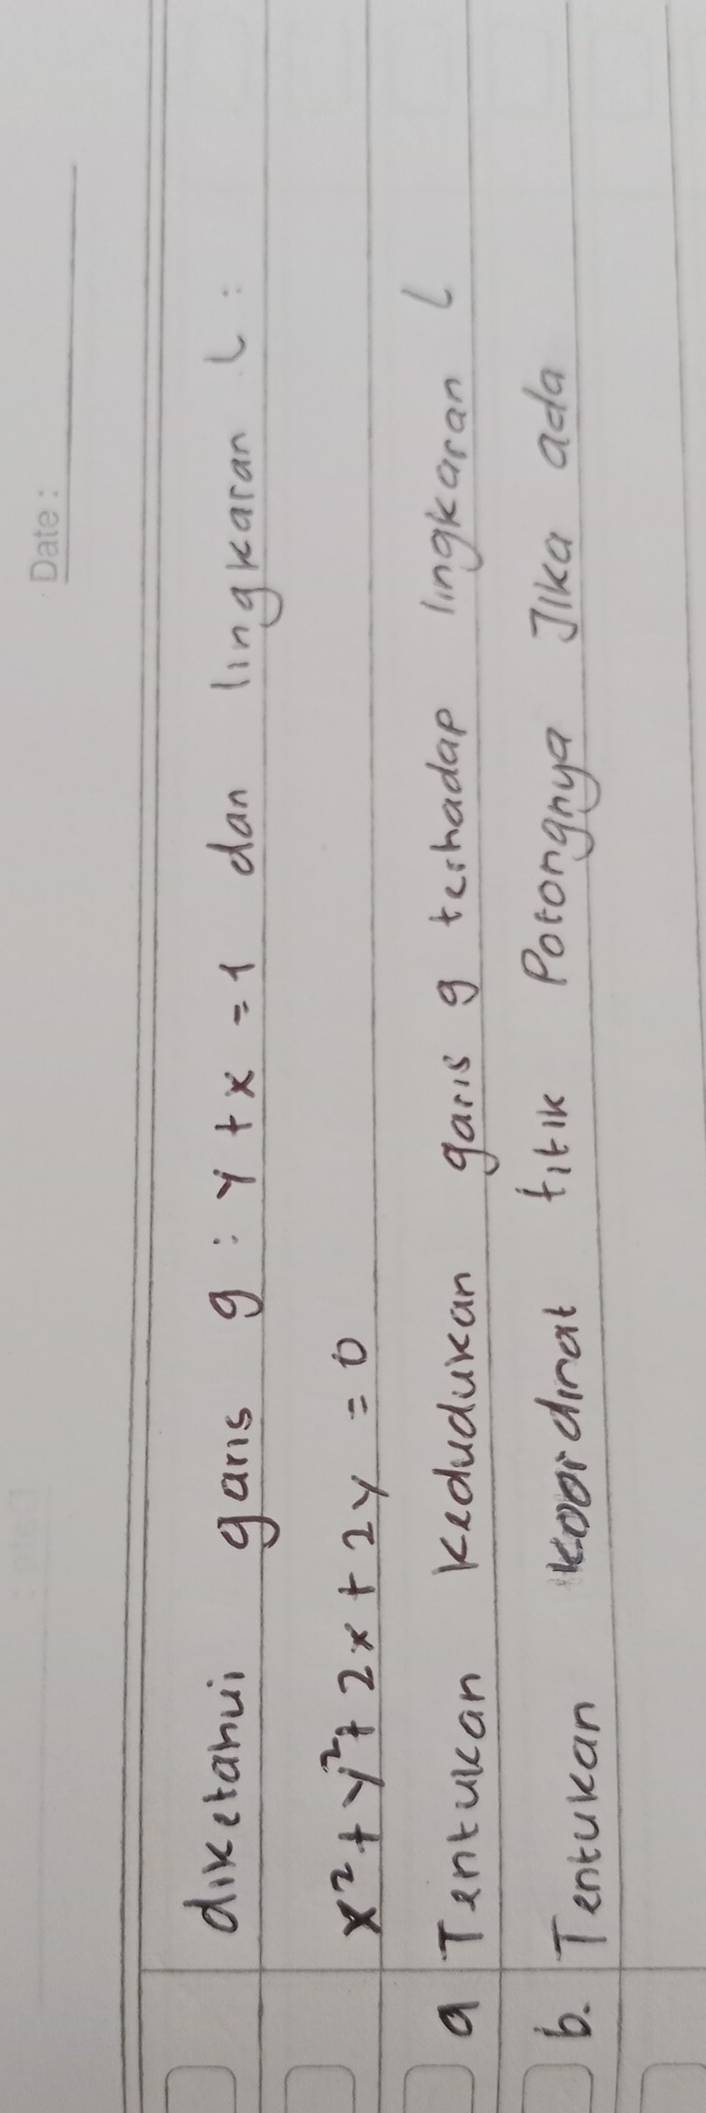 Date:
diketahui garis g : y + x = 1 dan lingkaran L :
x² + y² + 2x + 2y = 0
a Tentukan kedudukan garis g terhadap lingkaran L
b. Tentukan koordinat titik Potongnya Jika ada